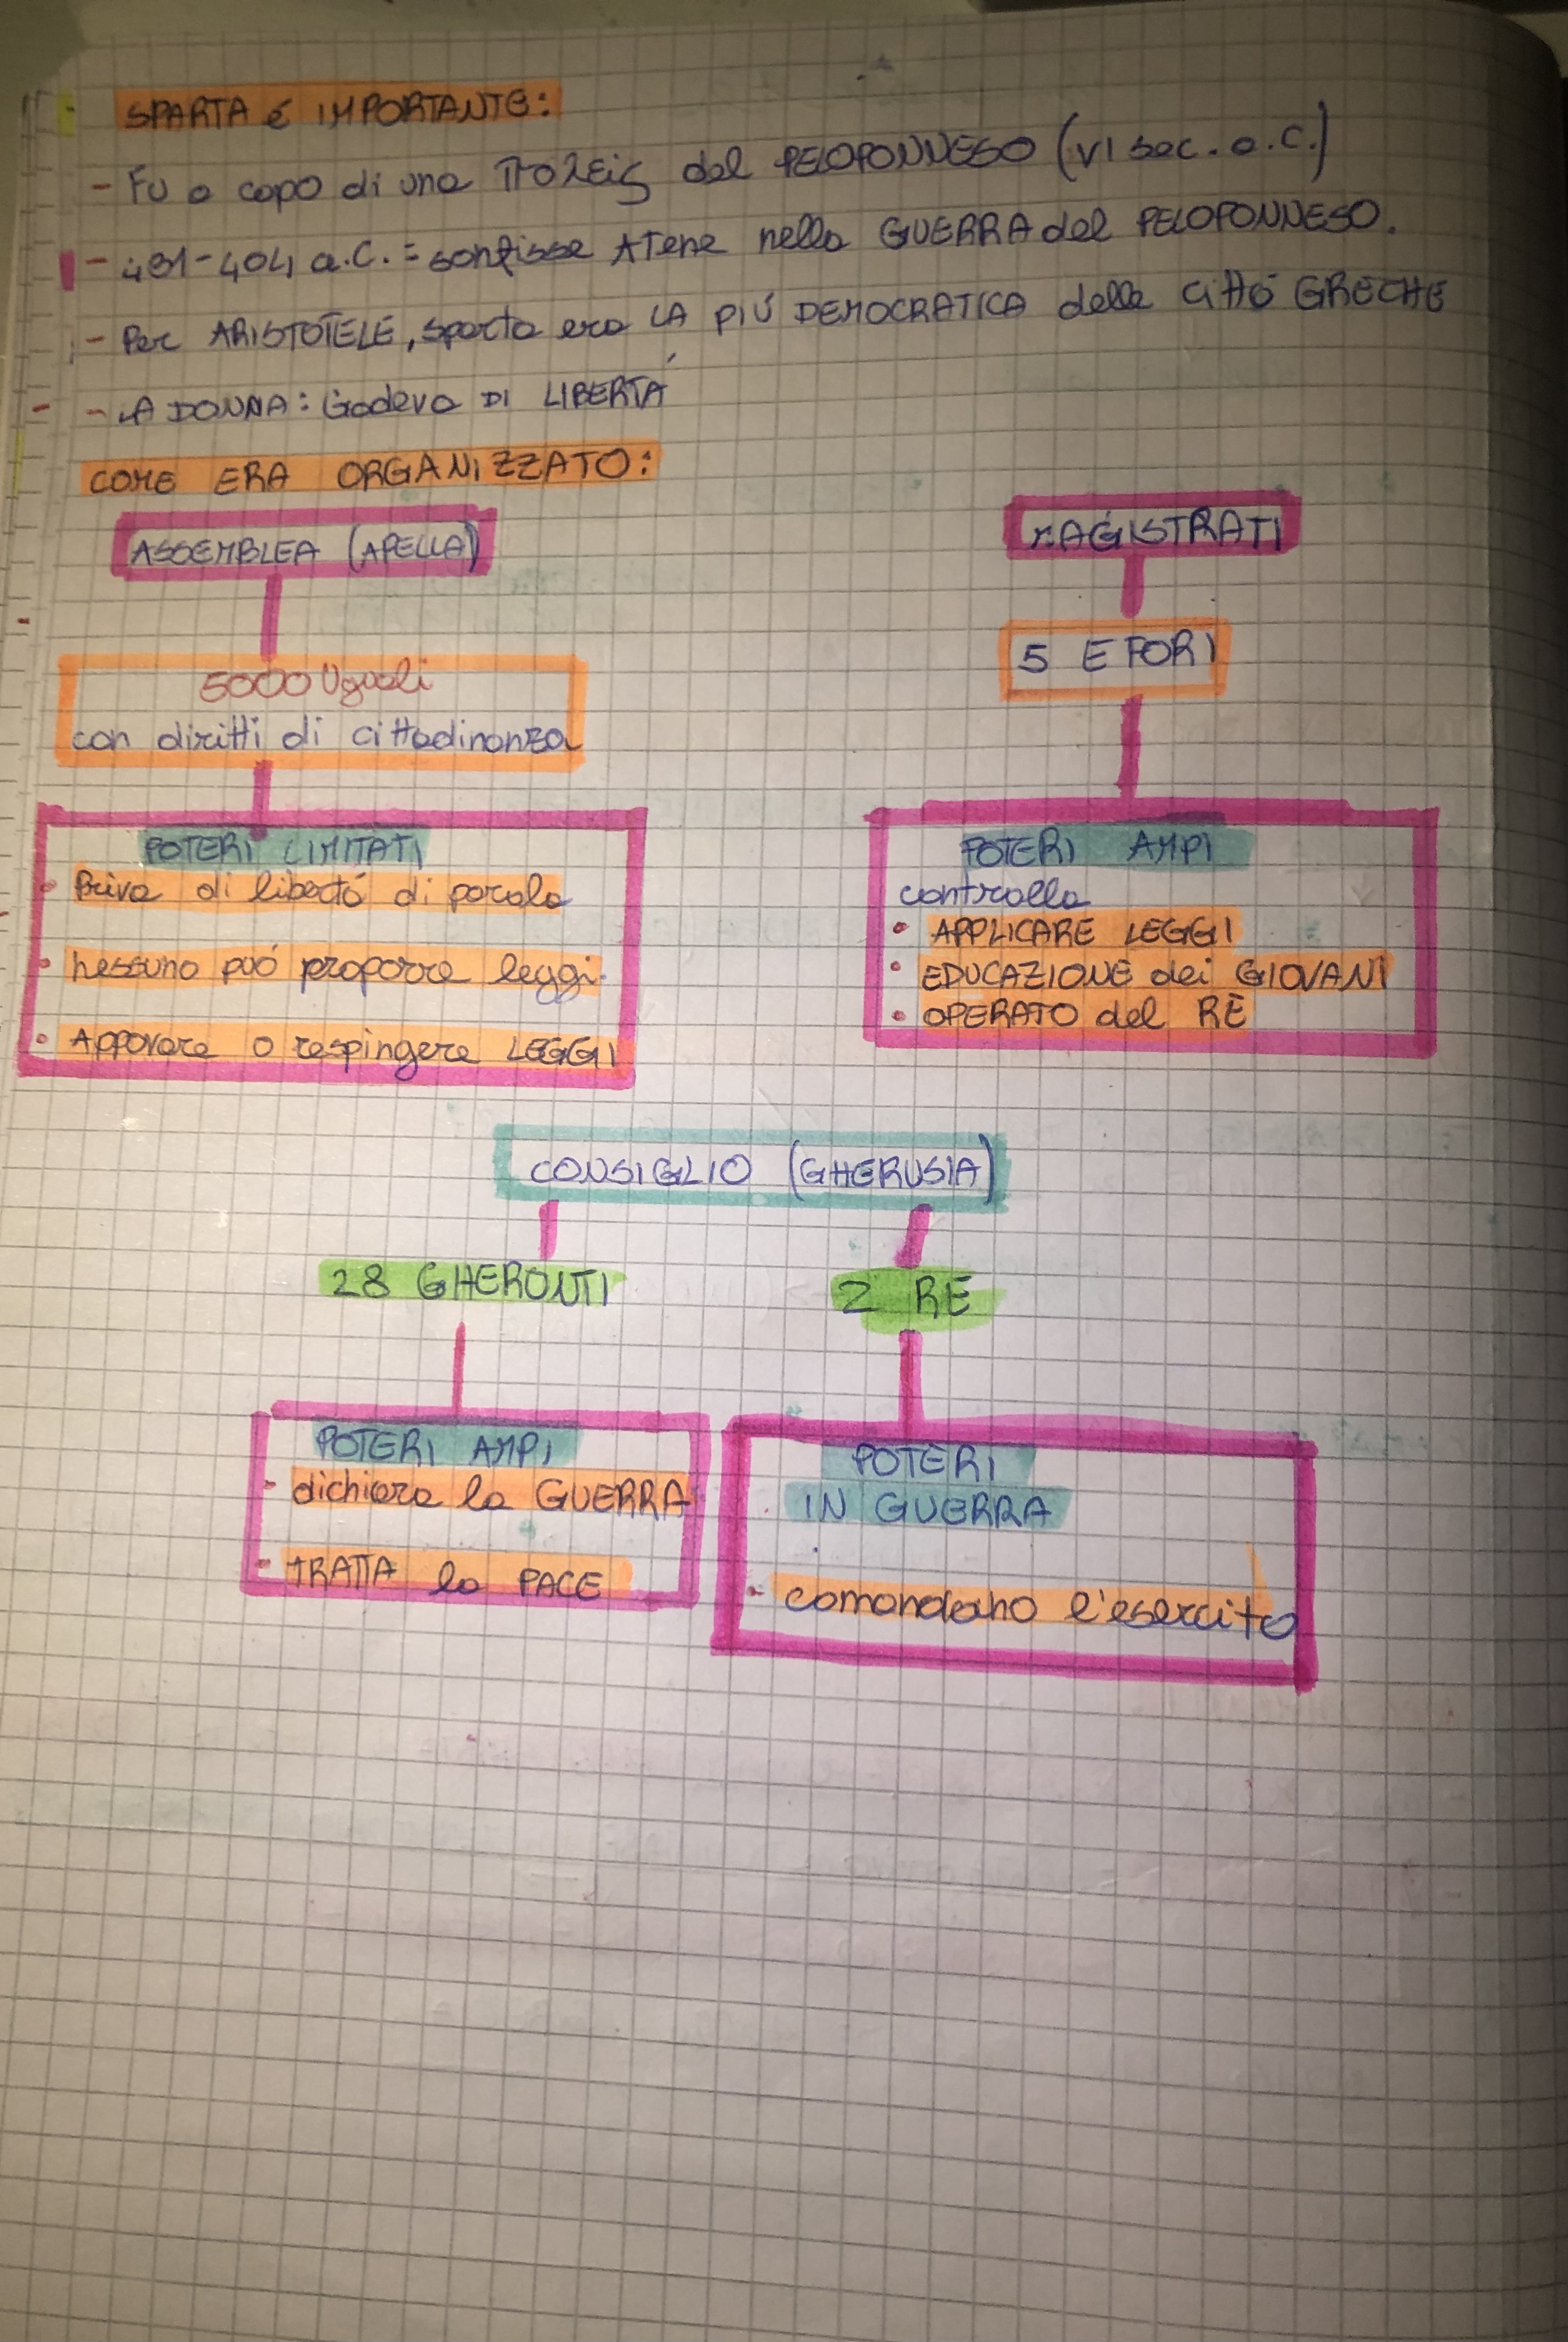 SPARTA é IMPORTANTE:
- FU a capo di una πολεις del PELOPONNESO (VI sec. a.C.)
- 431-404 a.C. = sonfisse ATene nella GUERRA del PELOPONNESO.
- Per ARISTOTELE, sparta era LA PIÚ DEMOCRATICA delle città GRECHE
- LA DONNA: Godeva DI LIBERTÁ
COME ERA ORGANIZZATO:
ASSEMBLEA (APELLA)
MAGISTRATI
5000 Uguali
con diritti di cittadinanza
5 EFORI
POTERI LIMITATI
• Priva di libertá di parola
• nessuno puó proporre leggi.
• Appovare o respingere LEGGI
POTERI AMPI
controlla
• APPLICARE LEGGI
• EDUCAZIONE dei GIOVANI
• OPERATO del RÈ
CONSIGLIO (GHERUSIA)
28 GHERONTI
2 RE
POTERI AMPI
- dichiara la GUERRA
- TRATTA la PACE
POTERI
IN GUERRA
- comandano l'esercito